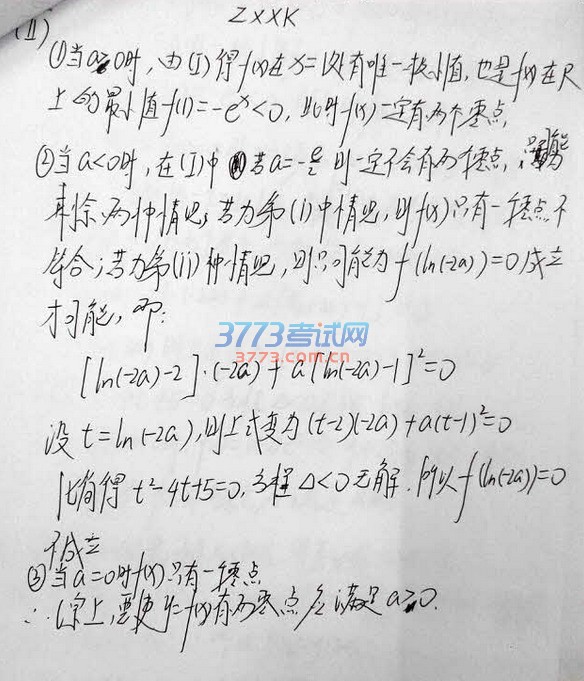 ZXXK
(Ⅱ)
①当a>0时,由(Ⅰ)得f(x)在x=1处有唯一极小值,也是f(x)在R
上的最小值f(1)=-e^x<0,此时f(x)一定有两个零点,
②当a<0时,在(Ⅰ)中 若a=-e/2 则一定不会有两个零点,
剩余两种情况,若为第(i)中情况,则f(x)只有一零点不
符合;若为第(ii)种情况,则只可能为f(ln(-2a))=0成立
才可能,即:
3773考试网
3773.com.cn
[ln(-2a)-2]·(-2a)+a[ln(-2a)-1]²=0
设t=ln(-2a),则上式变为(t-2)(-2a)+a(t-1)²=0
化简得t²-4t+5=0,方程Δ<0无解.所以f(ln(-2a))=0
不成立
③当a=0时f(x)只有一零点
∴综上,要使y=f(x)有两零点应满足a>0.